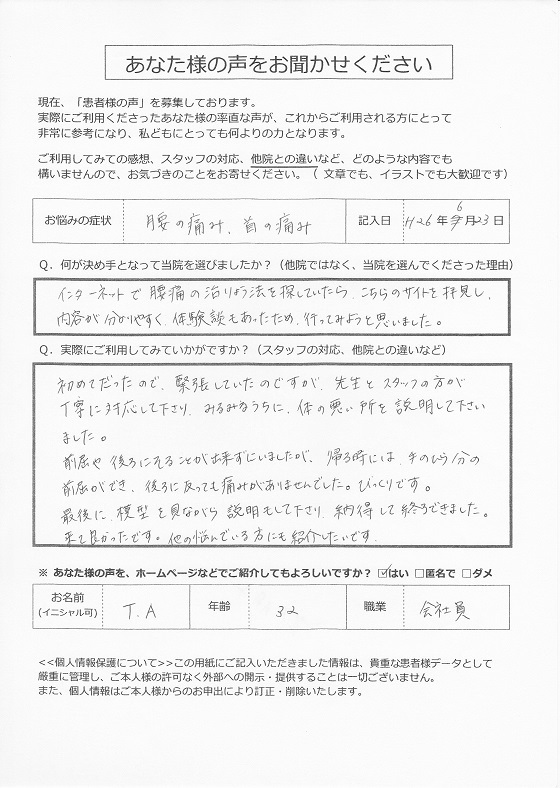 あなた様の声をお聞かせください
現在、「患者様の声」を募集しております。
実際にご利用くださったあなた様の率直な声が、これからご利用される方にとって
非常に参考になり、私どもにとっても何よりの力となります。
ご利用してみての感想、スタッフの対応、他院との違いなど、どのような内容でも
構いませんので、お気づきのことをお寄せください。（ 文章でも、イラストでも大歓迎です）
お悩みの症状 腰の痛み、首の痛み 記入日 H26 年 6 月 23 日
Q．何が決め手となって当院を選びましたか？（他院ではなく、当院を選んでくださった理由）
インターネットで腰痛の治りょう法を探していたら、こちらのサイトを拝見し、
内容が分かりやすく、体験談もあったため、行ってみようと思いました。
Q．実際にご利用してみていかがですか？（スタッフの対応、他院との違いなど）
初めてだったので、緊張していたのですが、先生とスタッフの方が
丁寧に対応して下さり、みるみるうちに、体の悪い所を説明して下さい
ました。
前屈や後ろにそることが出来ずにいましたが、帰る時には、手のひら分の
前屈ができ、後ろに反っても痛みがありませんでした。びっくりです。
最後に、模型を見ながら説明もして下さり、納得して終るできました。
来て良かったです。他の悩んでいる方にも紹介したいです。
※ あなた様の声を、ホームページなどでご紹介してもよろしいですか？ ☑はい □匿名で □ダメ
お名前
(イニシャル可) T.A 年齢 32 職業 会社員
<<個人情報保護について>>この用紙にご記入いただきました情報は、貴重な患者様データとして
厳重に管理し、ご本人様の許可なく外部への開示・提供することは一切ございません。
また、個人情報はご本人様からのお申出により訂正・削除いたします。